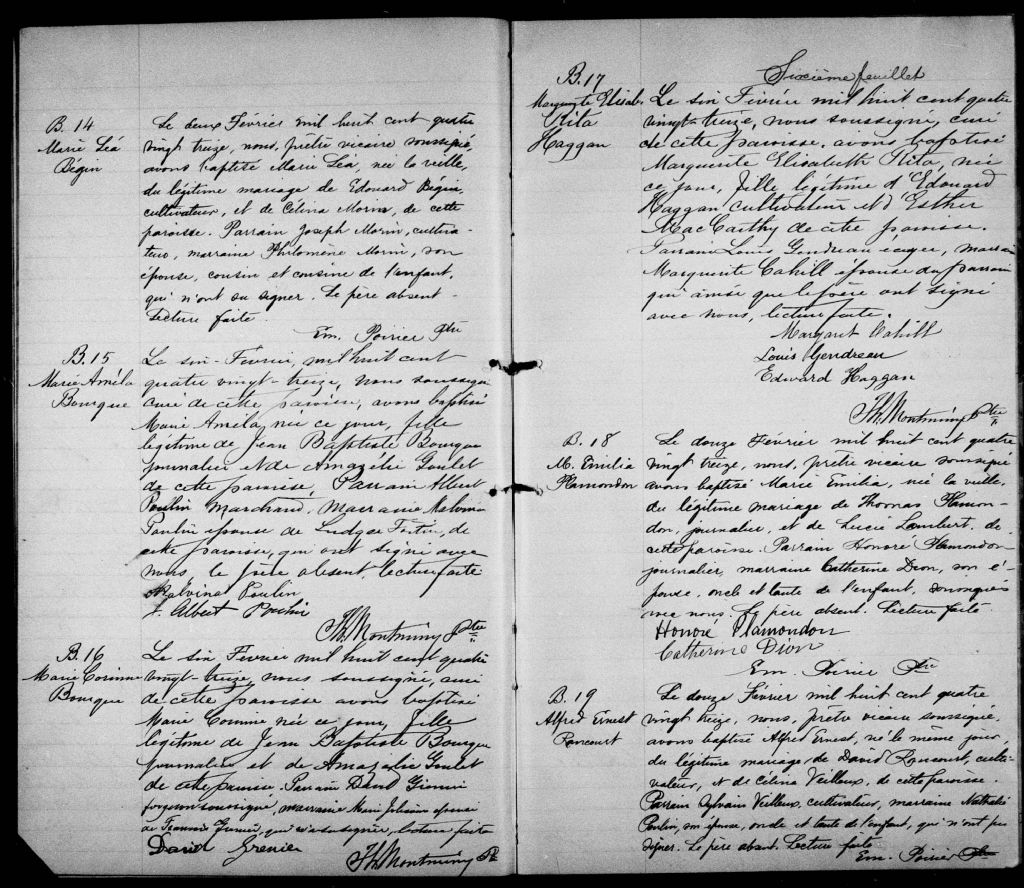 B. 14
Marie Léa
Bégin
Le deux Février mil huit cent quatre
vingt treize, nous, prêtre vicaire soussigné,
avons baptisé Marie Léa, née la veille,
du légitime mariage de Edouard Bégin,
cultivateur, et de Célina Morin, de cette
paroisse. Parrain Joseph Morin, cultiva-
teur, marraine Philomène Morin, son
épouse, cousin et cousine de l'enfant,
qui n'ont su signer. Le père absent.
Lecture faite.
Em. Poirier Ptre
B. 15
Marie Améla
Bourque
Le six Février, mil huit cent
quatre vingt-treize, nous soussigné
curé de cette paroisse, avons baptisé
Marie Améla, née ce jour, fille
légitime de Jean Baptiste Bourque
journalier et de Amazélie Goulet
de cette paroisse, Parrain Albert
Poulin marchand, Marraine Malvina
Poulin épouse de Ludger Fortin, de
cette paroisse, qui ont signé avec
nous, le père absent, lecture faite
Malvina Poulin
J. Albert Poulin
Th. Montminy Ptre
B. 16
Marie Corinne
Bourque
Le six Février mil huit cent quatre
vingt-treize, nous soussigné, curé
de cette paroisse avons baptisé
Marie Corinne née ce jour, fille
légitime de Jean Baptiste Bourque
journalier et de Amazélie Goulet
de cette paroisse, Parrain David Grenier
forgeron soussigné, marraine Marie épouse
de Francois Grenier, qui n'a su signer, lecture faite
David Grenier
Th. Montminy Pt
Sixième feuillet
B. 17
Marguerite Elisab.
Rita
Haggan
Le six Février mil huit cent quatre
vingt-treize, nous soussigné, curé
de cette paroisse, avons baptisé
Marguerite Elisabeth Rita, née
ce jour, fille légitime d'Edouard
Haggan cultivateur et d'Esther
MacCarthy de cette paroisse.
Parrain Louis Gendreau, marraine
Marguerite Cahill épouse du parrain
qui ainsi que le père ont signé
avec nous, lecture faite.
Margaret Cahill
Louis Gendreau
Edward Haggan
Th. Montminy Ptre
B. 18
M. Emilia
Plamondon
Le douze Février mil huit cent quatre
vingt treize, nous, prêtre vicaire soussigné
avons baptisé Marie Emilia, née la veille,
du légitime mariage de Thomas Plamon-
don, journalier, et de Lucie Lambert, de
cette paroisse. Parrain Honoré Plamondon
journalier, marraine Catherine Dion, son é-
pouse, oncle et tante de l'enfant, soussignés
avec nous. Le père absent. Lecture faite.
Honoré Plamondon
Catherine Dion
Em. Poirier Ptre
B. 19
Alfred Ernest
Rancourt
Le douze Février mil huit cent quatre
vingt treize, nous, prêtre vicaire soussigné,
avons baptisé Alfred Ernest, né le même jour,
du légitime mariage de David Rancourt, culti-
vateur, et de Célina Veilleux, de cette paroisse.
Parrain Sylvain Veilleux, cultivateur, marraine Nathalie
Poulin, son épouse, oncle et tante de l'enfant, qui n'ont pu
signer. Le père absent. Lecture faite.
Em. Poirier Ptre